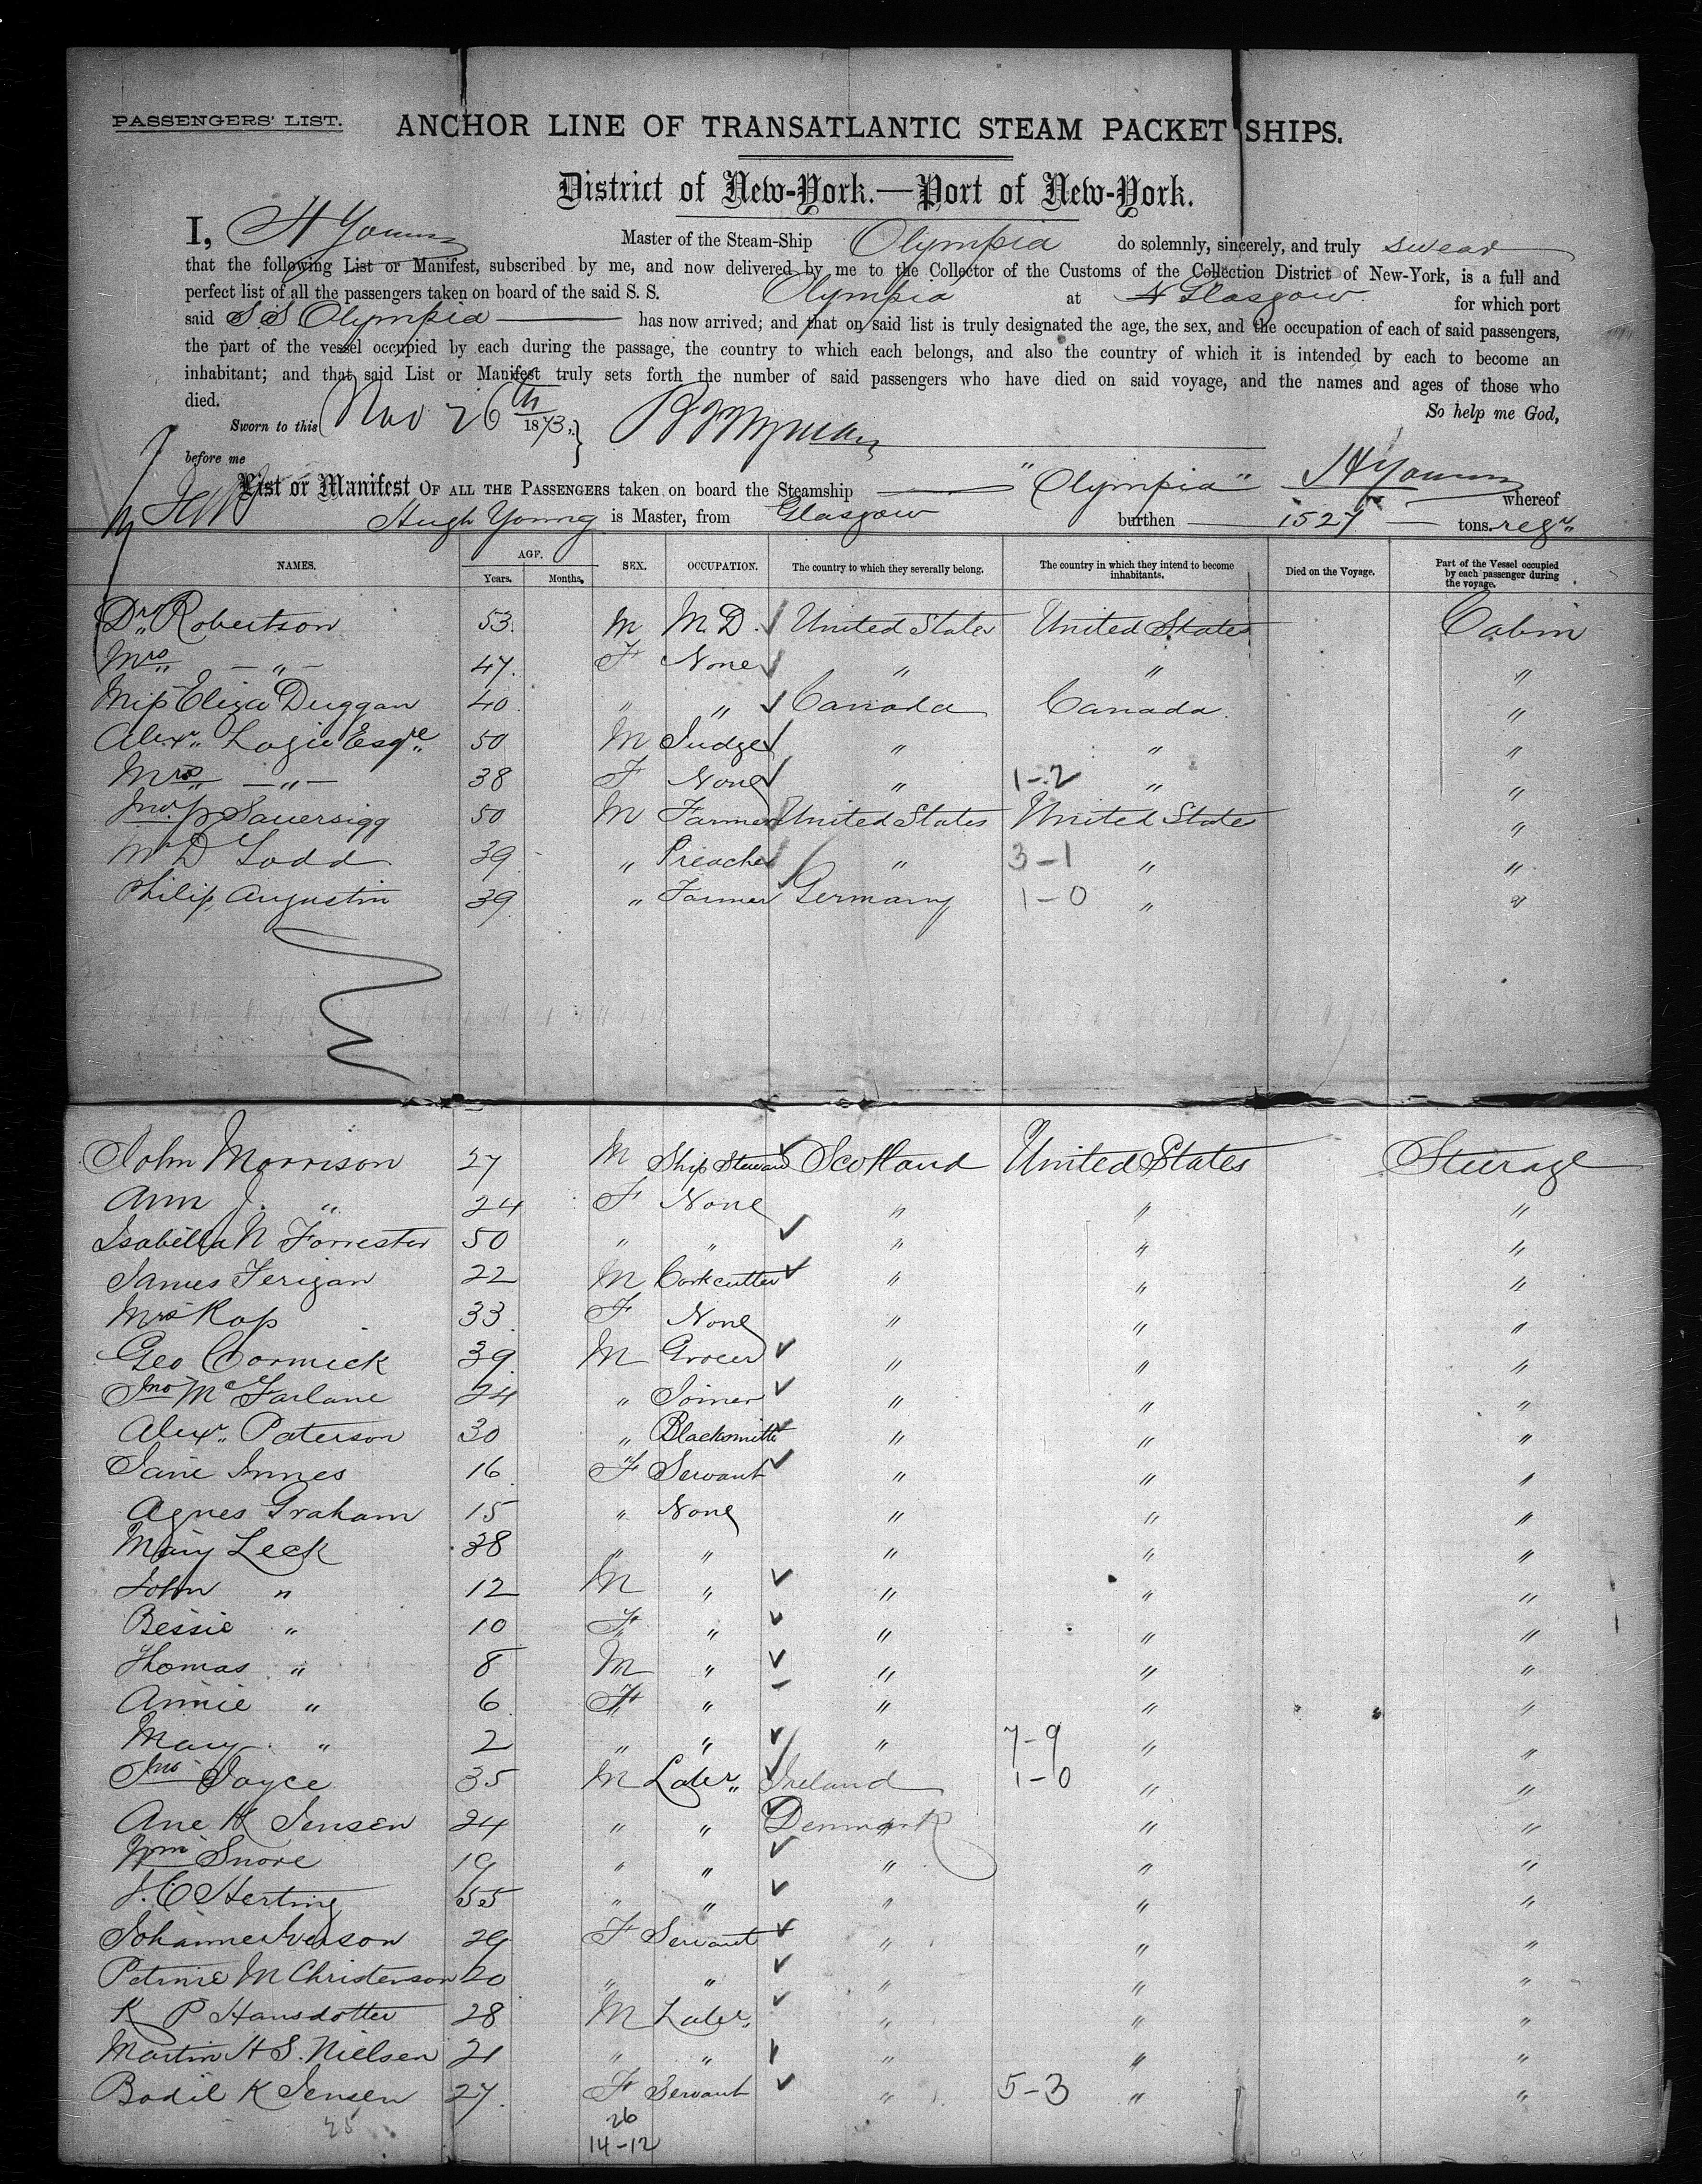 PASSENGERS' LIST.
ANCHOR LINE OF TRANSATLANTIC STEAM PACKET SHIPS.
District of New-York.—Port of New-York.
I, H Young Master of the Steam-Ship Olympia do solemnly, sincerely, and truly swear
that the following List or Manifest, subscribed by me, and now delivered by me to the Collector of the Customs of the Collection District of New-York, is a full and
perfect list of all the passengers taken on board of the said S. S. Olympia at Glasgow. for which port
said S.S Olympia has now arrived; and that on said list is truly designated the age, the sex, and the occupation of each of said passengers,
the part of the vessel occupied by each during the passage, the country to which each belongs, and also the country of which it is intended by each to become an
inhabitant; and that said List or Manifest truly sets forth the number of said passengers who have died on said voyage, and the names and ages of those who
died. So help me God,
Sworn to this Nov 26th 1873,
before me H Young
List or Manifest OF ALL THE PASSENGERS taken on board the Steamship "Olympia" whereof
Hugh Young is Master, from Glasgow burthen 1527 tons. regr
NAMES. AGE. Years. Months. SEX. OCCUPATION. The country to which they severally belong. The country in which they intend to become inhabitants. Died on the Voyage. Part of the Vessel occupied by each passenger during the voyage.
Dr. Robertson 53. M M.D. United States United States Cabin
Mrs — " — 47. F None " " "
Miss Eliza Duggan 40. " " Canada Canada. "
Alexr. Logie Esqre. 50 M Judge " " "
Mrs — " — 38 F None " 1-2 " "
Jno. Sauersigg 50 M Farmer United States United States "
D Todd 39 " Preacher " 3-1 " "
Philip Augustin 39. " Farmer Germany 1-0 " "
John Morrison 27 M Ship Steward Scotland United States Steerage
Ann J. " 24 F None " " "
Isabella N Forrester 50 " " " " "
James Ferigan 22 M Corkcutter " " "
Mrs Ross 33. F None " " "
Geo Cormick 39. M Grocer " " "
Jno McFarlane 24 " Joiner " " "
Alexr. Paterson 30 " Blacksmith " " "
Jane Innes 16. F Servant " " "
Agnes Graham 15 " None " " "
Mary Leck 38 " " " " "
John " 12 M " " " "
Bessie " 10 F " " " "
Thomas " 8 M " " " "
Annie " 6 F " " " "
Mary " 2 " " " 7-9 " "
Jno Joyce 35 M Labr. Ireland 1-0 " "
Ane K Jensen 24 " " Denmark " "
Wm Snore 19 " " " " "
J. C Herting 55 " " " " "
Johanne Iverson 29 F Servant " " "
Petrine M Christenson 20 " " " " "
K P Hansdotter 28 M Labr. " " "
Martin H S. Nielsen 21 " " " " "
Bodil K Jensen 27. F Servant " 5-3 " "
25
26
14-12